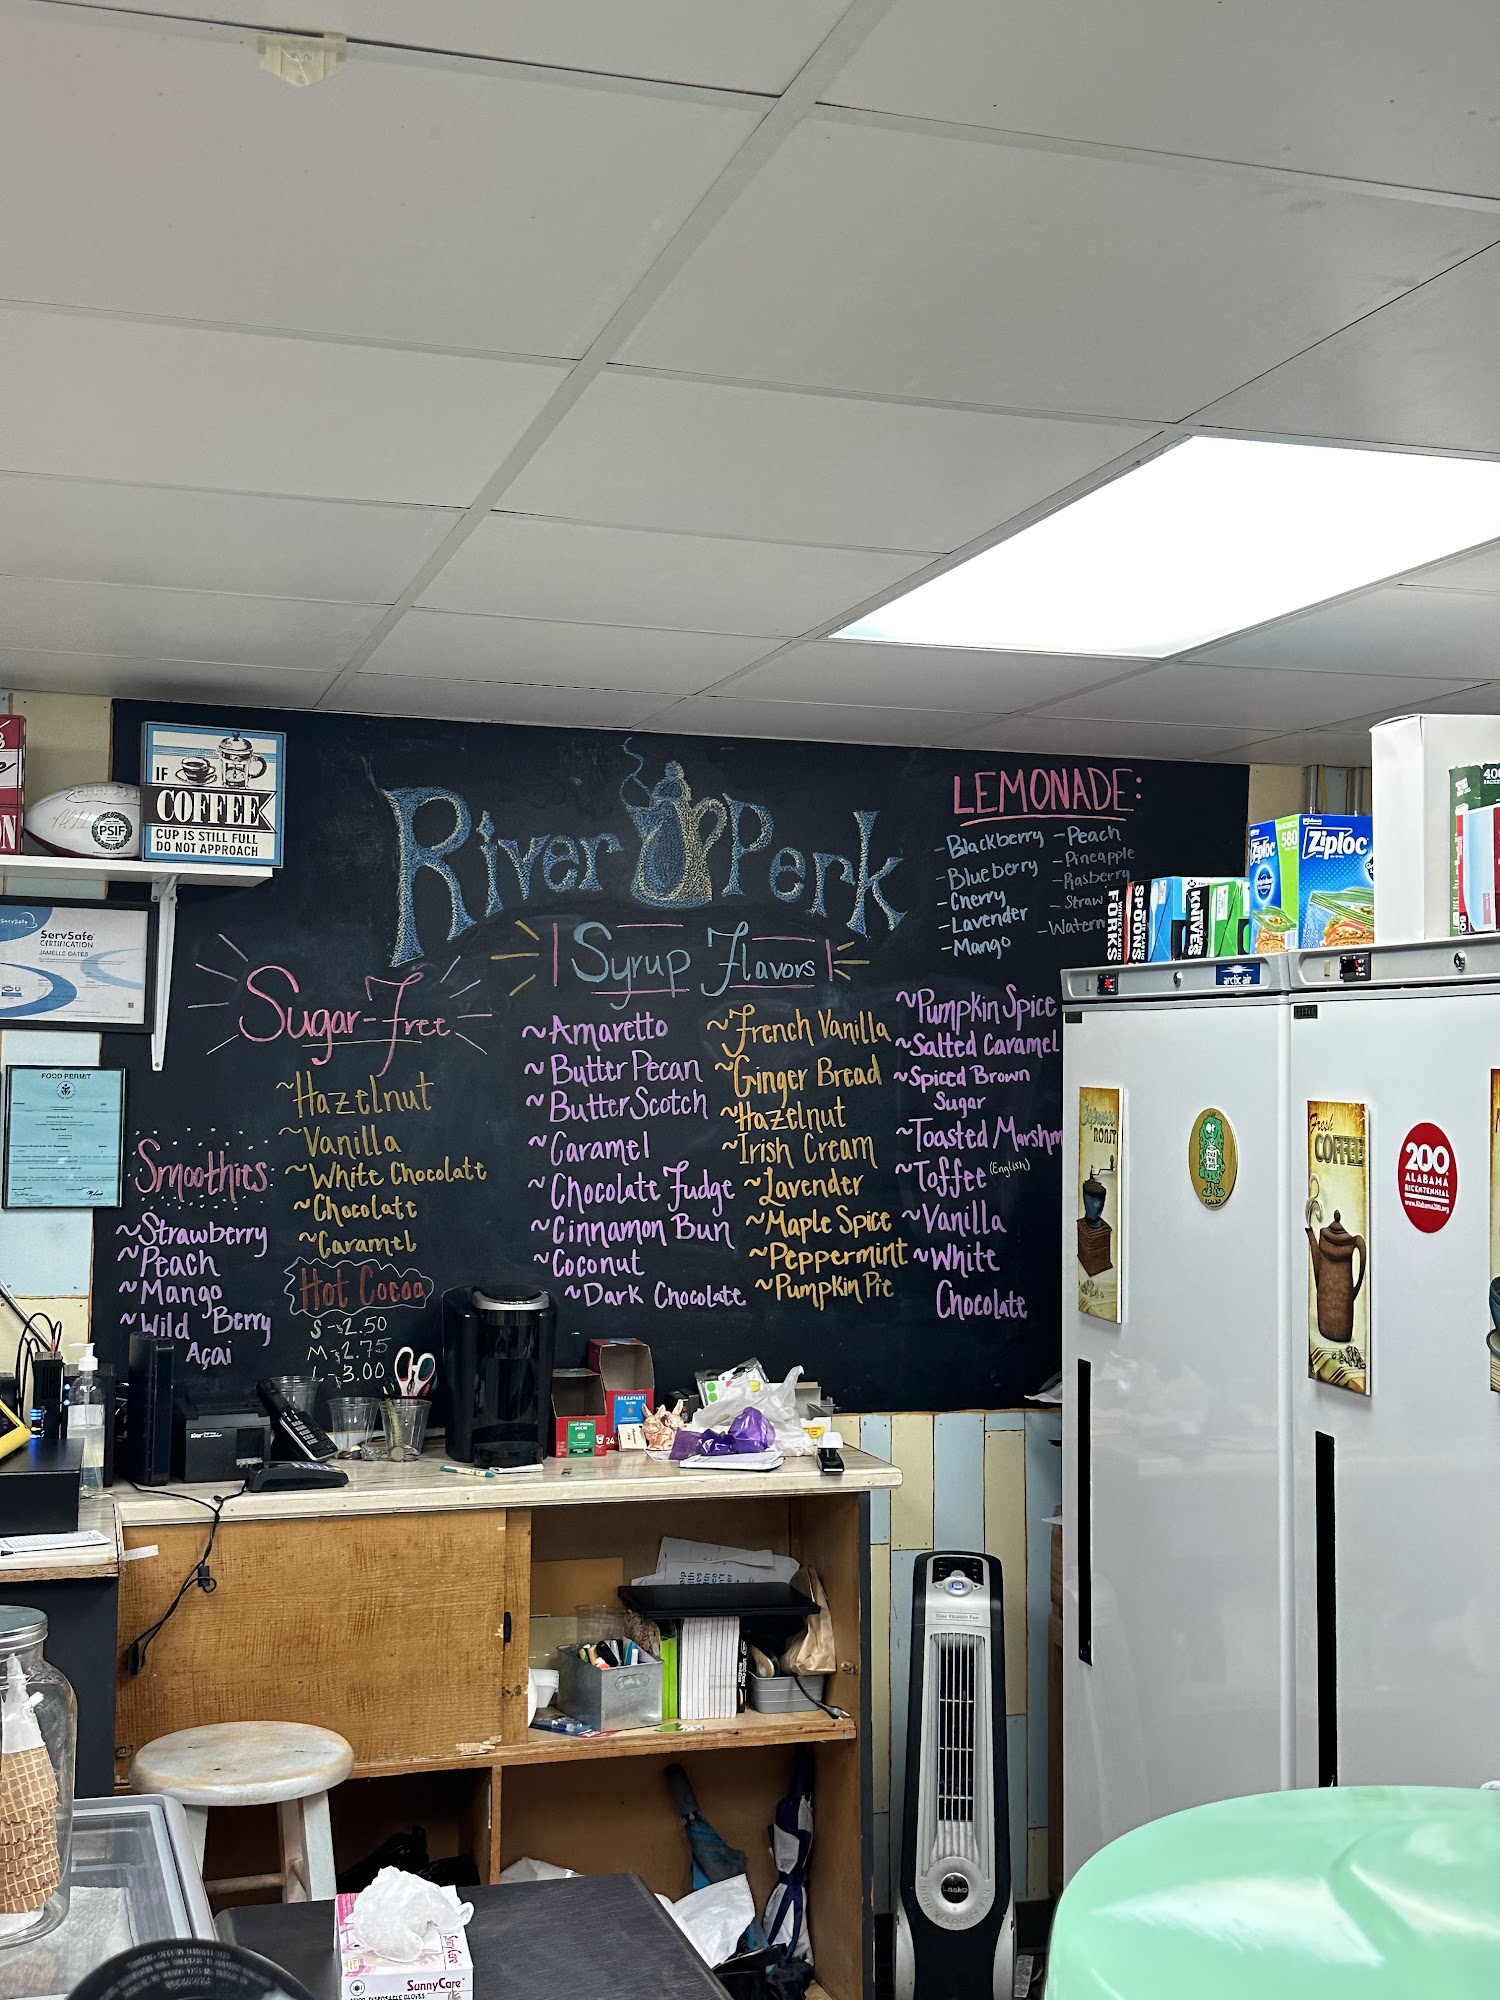 IF
COFFEE
CUP IS STILL FULL
DO NOT APPROACH
PSIF
ServSafe
CERTIFICATION
JAMELLE OATES
FOOD PERMIT
River Perk
Syrup Flavors
LEMONADE:
-Blackberry
-Blueberry
-Cherry
-Lavender
-Mango
-Peach
-Pineapple
-Rasberry
-Straw
-Waterm
Sugar-Free
~Hazelnut
~Vanilla
~White Chocolate
~Chocolate
~Caramel
Hot Cocoa
S-$2.50
M-$2.75
L-$3.00
Smoothies
~Strawberry
~Peach
~Mango
~Wild Berry
Açai
~Amaretto
~Butter Pecan
~ButterScotch
~Caramel
~Chocolate Fudge
~Cinnamon Bun
~Coconut
~Dark Chocolate
~French Vanilla
~Ginger Bread
~Hazelnut
~Irish Cream
~Lavender
~Maple Spice
~Peppermint
~Pumpkin Pie
~Pumpkin Spice
~Salted Caramel
~Spiced Brown
Sugar
~Toasted Marshm
~Toffee (English)
~Vanilla
~White
Chocolate
FORKS
SPOONS
KNIVES
580
Ziploc
Ziploc
arctic air
ROAST
Fresh
COFFEE
200
ALABAMA
BICENTENNIAL
www.Alabama200.org
24
Lasko
SunnyCare